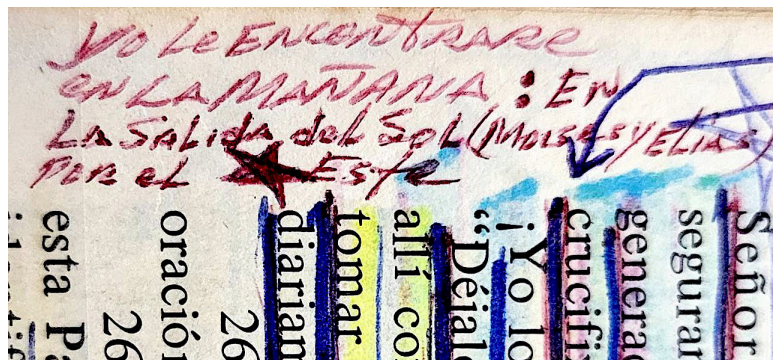 YO LE ENCONTRARE
EN LA MAÑANA : EN
LA SALIDA del SOL (MOISES y ELIAS)
POR el ESTE
Señor
segura
genera
crucifi
¡Yo lo
“Déjalo
allí co
tomar
diariam
26
oración
26
esta Pa